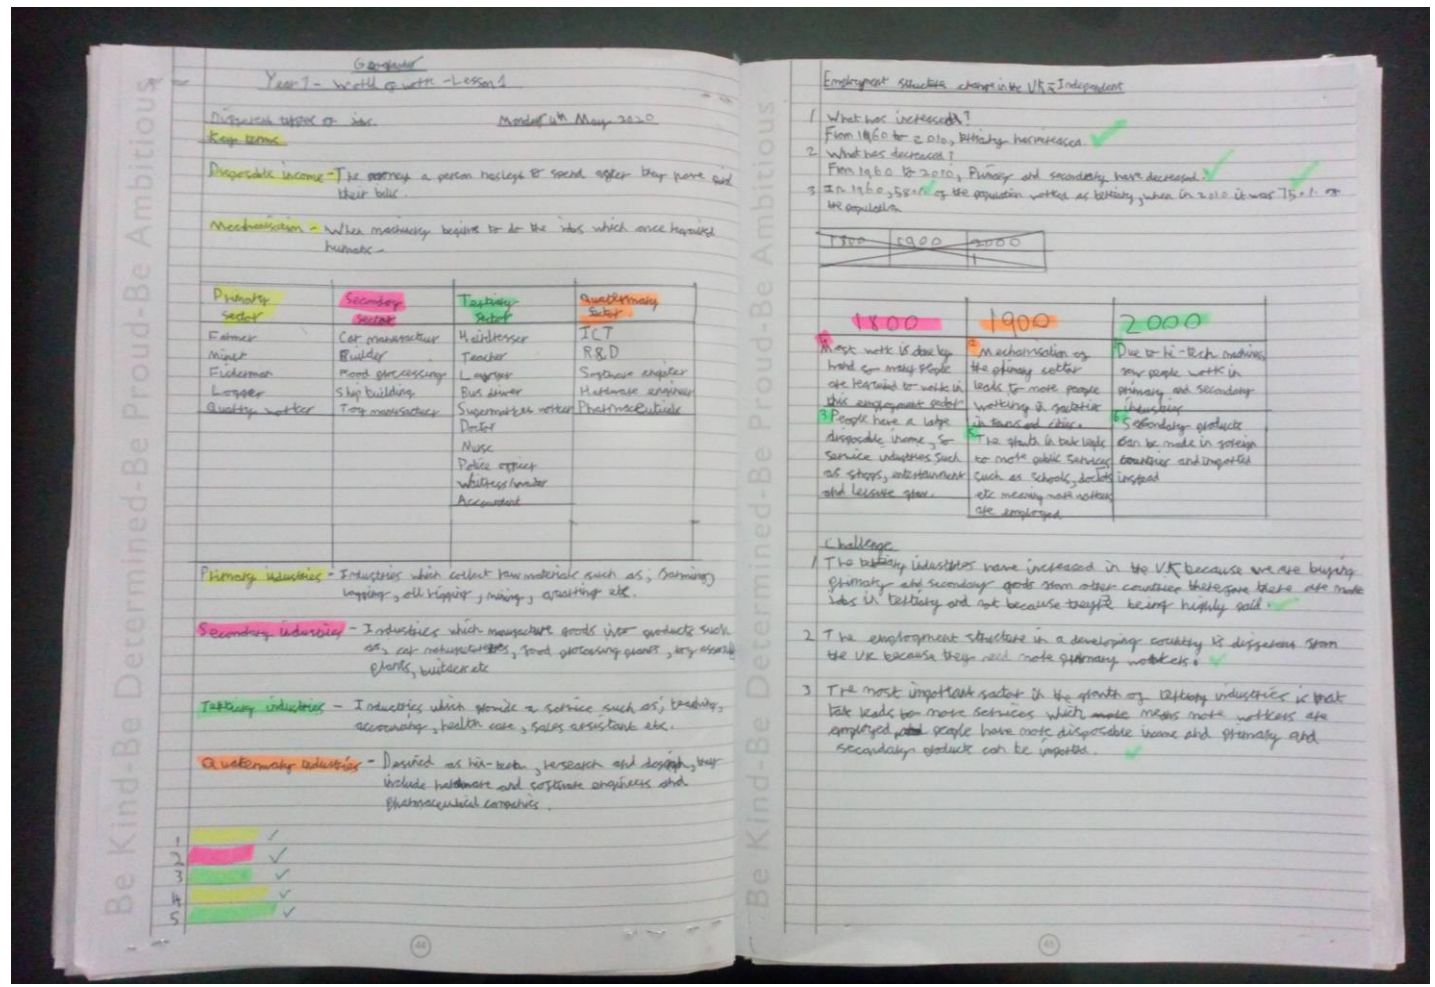 Geography
Year 7 - World of work - Lesson 1
Different types of jobs. Monday 4th May 2020
Key terms
Disposable income - The money a person has left to spend after they have paid
their bills.
Mechanisation - When machinery begins to do the jobs which once required
humans.
Primary Secondary Tertiary Quaternary
sector sector sector sector
Farmer Car manufacture Hairdresser ICT
Miner Builder Teacher R&D
Fisherman Food processing Lawyer Software engineer
Logger Ship building Bus driver Hardware engineer
Quarry worker Toy manufacture Supermarket worker Pharmaceuticals
Doctor
Nurse
Police officer
Waitress/waiter
Accountant
Primary industries - Industries which collect raw materials such as; farming,
logging, oil rigging, mining, quarrying etc.
Secondary industries - Industries which manufacture goods into products such
as, car manufacturers, food processing plants, toy assembly
plants, builders etc
Tertiary industries - Industries which provide a service such as; teaching,
accounting, health care, sales assistant etc.
Quaternary industries - Defined as hi-tech, research and design, they
include hardware and software engineers and
pharmaceutical companies.
1
2
3
4
5
44
Be Kind-Be Determined-Be Proud-Be Ambitious
Employment structure change in the UK - Independent
1 What has increased?
From 1960 to 2010, tertiary has increased.
2 What has decreased?
From 1960 to 2010, Primary and secondary have decreased.
3 In 1960, 58% of the population worked as tertiary, when in 2010 it was 75% of
the population
1800 1900 2000
1
1800 1900 2000
Most work is done by
hand so many people
are required to work in
this employment sector
3 People have a large
disposable income, so
service industries such
as shops, entertainment
and leisure grow.
2 Mechanisation of
the primary sector
leads to more people
working in factories
in towns and cities.
5 The growth in tax leads
to more public services
such as schools, doctors
etc meaning more workers
are employed
Due to hi-tech machines,
people work in
primary and secondary
industries
6 Secondary products
can be made in foreign
countries and imported
instead
Challenge
1 The tertiary industries have increased in the UK because we are buying
primary and secondary goods from other countries therefore there are more
jobs in tertiary and not because they're being highly paid.
2 The employment structure in a developing country is different from
the UK because they need more primary workers.
3 The most important factor in the growth of tertiary industries is that
tax leads to more services which means more workers are
employed, people have more disposable income and primary and
secondary products can be imported.
45
Be Kind-Be Determined-Be Proud-Be Ambitious